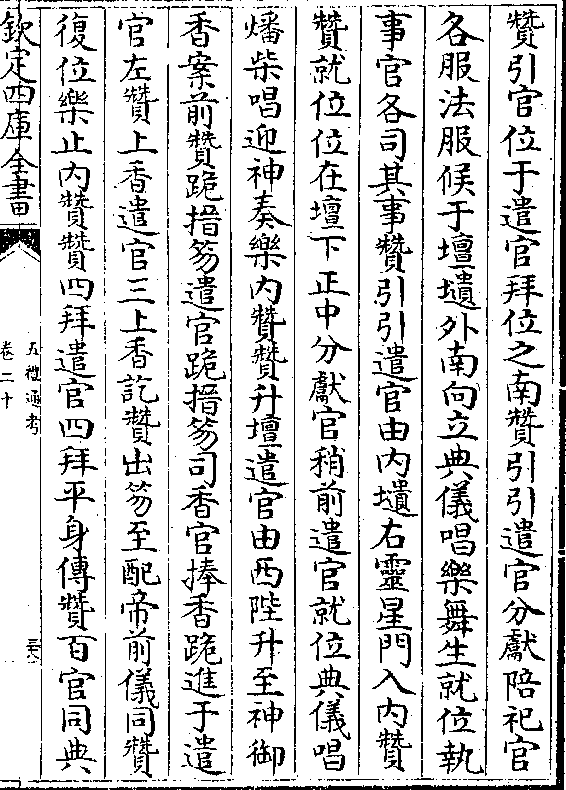 贊引官位于遣官拜位之南贊引引遣官分獻陪祀官
各服法服候于壇壝外南向立典儀唱樂舞生就位執
事官各司其事贊引引遣官由內壝右靈星門入內贊
贊就位位在壇下正中分獻官稍前遣官就位典儀唱
燔柴唱迎神奏樂內贊贊升壇遣官由西陛升至神御
香案前贊跪搢笏遣官跪搢笏司香官捧香跪進于遣
官左贊上香遣官三上香訖贊出笏至配帝前儀同贊
復位樂止內贊贊四拜遣官四拜平身傳贊百官同典
欽定四庫全書
五禮通考
卷二十